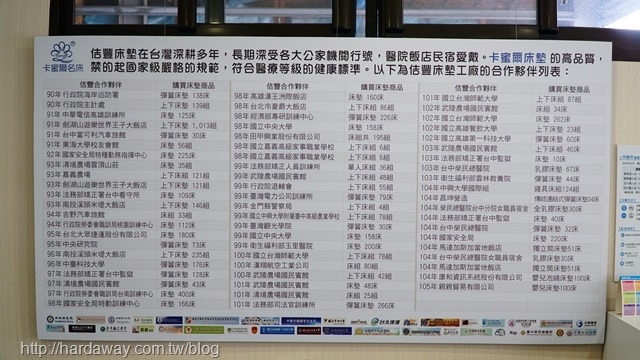 卡蜜爾名床
佶豐床墊在台灣深耕多年，長期深受各大公家機關行號，醫院飯店民宿愛戴。卡蜜爾床墊 的高品質，
禁的起國家級嚴格的規範，符合醫療等級的健康標準。以下為佶豐床墊工廠的合作夥伴列表：
佶豐合作夥伴 購買床墊商品
90年 行政院海岸巡防署 彈簧床墊 138床
90年 行政院主計處 上下床墊 139組
91年 中華電信高雄訓練所 床墊 125床
91年 劍湖山遊樂世界王子大飯店 上下床墊 1,013組
91年 台中富可利汽車旅館 彈簧床墊 30床
91年 東海大學校友會館 上下床墊 56組
92年 國家安全局特種勤務指揮中心 床墊 225床
93年 清境農場雲頂山莊 床墊 55組
93年 嘉義農場 上下床墊 121組
93年 劍湖山遊樂世界王子大飯店 上下床墊 121組
93年 法務部矯正署台中看守所 床墊 109床
93年 南投溪頭米堤大飯店 上下床墊 146組
94年 吉野汽車旅館 床組 33組
94年 行政院勞委會職訓局桃園訓練中心 床墊 112床
95年 台北大眾捷運股份有限公司 床墊 180床
95年 中央研究院 彈簧床墊 73床
96年 南投溪頭米堤大飯店 上下床墊 235組
97年 中臺科技大學 彈簧床墊 176床
97年 法務部矯正署台中監獄 彈簧床墊 128床
97年 清境農場國民賓館 彈簧床墊 43床
97年 行政院勞委會職訓局台南訓練中心 床墊 400床
98年 國家安全局特勤訓練中心 床墊 166床
佶豐合作夥伴 購買床墊商品
98年 高雄漢王洲際飯店 床墊 160床
98年 台北市豪爵大飯店 上下床組 86組
98年 經濟部專研訓練中心 彈簧床墊 226床
98年 國立中央大學 床墊 158床
98年 田中興業股份有限公司 床組共 195組
98年 國立嘉義高級家事職業學校 上下床組 6組
98年 國立嘉義高級家事職業學校 上下床組 68組
98年 法務部矯正人員訓練所 單人床組 36組
98年 武陵農場國民賓館 上下床組 48組
99年 行政院退輔會 上下床組 55組
99年 臺灣電力公司訓練所 彈簧床墊 79床
99年 金門縣警察局 上下床組 4組
99年 國立中興大學附屬臺中高級農業學校 上下床組 78組
99年 臺灣觀光學院 彈簧床墊 30床
99年 國立中央大學 彈簧床墊 158床
99年 衛生福利部玉里醫院 床墊 200床
100年 國立台灣師範大學 上下床組 78組
100年 漢翔航空工業公司 床組 80組
100年 武陵農場國民賓館 上下床組 42組
101年 清境農場國民賓館 上下床組 48組
101年 清境農場國民賓館 床組 25組
101年 法務部司法官訓練所 彈簧床墊 266床
佶豐合作夥伴 購買床墊商品
101年 國立台灣師範大學 上下床組 87組
102年 武陵農場國民賓館 床組 34床
102年 國立台灣師範大學 床墊 262床
102年 國立高雄餐飲大學 上下床墊 23組
102年 國立高雄第一科技大學 床墊 60床
103年 武陵農場國民賓館 上下床組 46床
103年 法務部矯正署台中監獄 床墊 10床
103年 台中榮民總醫院 乳膠床墊 67床
103年 衛生福利部雲林教養院 彈簧床墊 44床
103年 中興大學國際組 寢具床組124組
104年 昌坤營造
104年 榮民總醫院台中分院女職員宿舍 全乳膠床墊30床
104年 法務部矯正署台中監獄 床墊 40床
104年 台中榮民總醫院 彈簧床墊 32床
104年 國家安全局 床墊 220床
104年 馬達加斯加當地飯店 獨立筒床墊51床
104年 台中榮民總醫院女職員宿舍 乳膠床墊30床
104年 馬達加斯加當地飯店 獨立筒床墊51床
104年 康和資訊系統股份有限公司 嬰兒泡綿床墊100床
105年 親親貿易有限公司 嬰兒床墊100床
http://hardaway.com.tw/blog